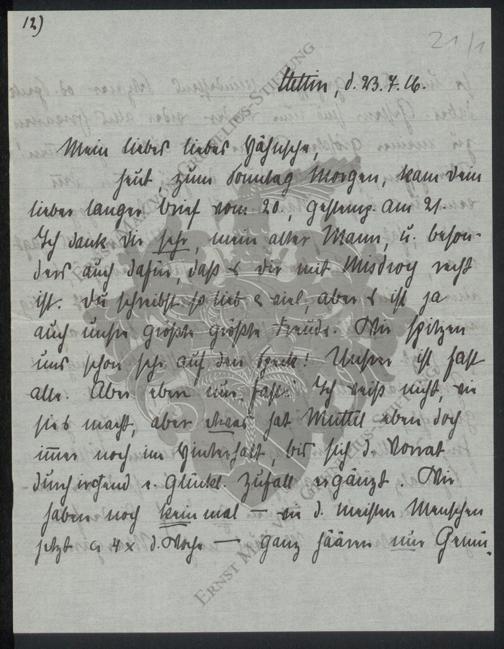 12)
21/1
Stettin, d. 23.7.16.
Mein liebes liebes
heut, zum Sonntag Morgen, kam Dein
lieber langer Brief vom 20., gestemp. am 21.
Ich dank Dir sehr, mein alter Mann, u. beson-
ders auch dafür, daß es Dir mit Misdroy recht
ist. Du schreibst so lieb & viel, aber es ist ja
auch unsre größte größte Freude. Wir spitzen
uns schon sehr auf den Speck! Unsrer ist fast
alle. Aber eben nur fast. Ich weiß nicht, wie
sie's macht, aber etwas hat Muttel eben doch
immer noch im Hinterhalt, bis sich d. Vorrat
durch irgend e. glückl. Zufall ergänzt. Wir
haben noch kein mal — wie d. meisten Menschen
jetzt 4 x d. Woche — ganz nur Gemü-
ERNST MAX VON GRUNELIUS-STIFTUNG